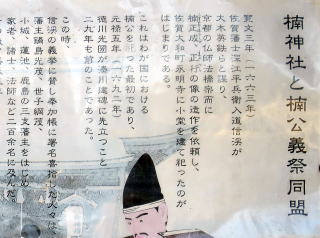 楠神社と楠公義祭同盟
寛文三年（一六六三年）
佐賀藩士深江平兵衛入道信渓が
大木英鉄らと謀り、
京都の仏師法橋宗而に
楠正成、正行の像の造作を依頼し、
佐賀大和町永明寺に小堂を建て祀ったのが
はじまりである。
これはわが国における
楠公を祀った最初であり、
元禄五年（一六九二年）
徳川光圀が湊川建碑に先立つこと
二九年も前のことであった。
この時、
信渓の義挙に賛し奉加帳に署名喜捨した人々は、
藩主鍋島光茂、世子綱茂、
小城、蓮池、鹿島の三支藩主をはじめ、
家老、諸士、法師など二百余名に及んだ。